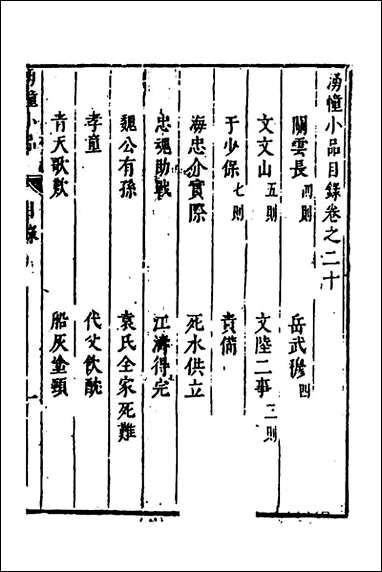 湧幢小品目錄卷之二十
關雲長四則 岳武穆四
文文山五則 文陸二事二則
于少保七則 責備
海忠介實際 死水供立
忠魂助戰 江濤得完
魏公有孫 袁氏全家死難
孝童 代父飲酖
青天歌數 船灰塗頸
湧幢小品 目錄 一